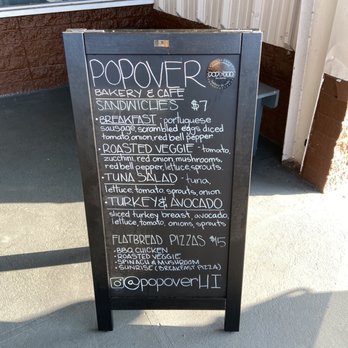 POPOVER
BAKERY & CAFE
SANDWICHES $7
• BREAKFAST: portuguese
sausage, scrambled eggs diced
tomato, onion, red bell pepper
• ROASTED VEGGIE - tomato,
zucchini, red onion, mushrooms,
red bell pepper, lettuce, sprouts
• TUNA SALAD - tuna,
lettuce, tomato, sprouts, onion
• TURKEY & AVOCADO
sliced turkey breast, avocado,
lettuce, tomato, onions, sprouts
FLATBREAD PIZZAS $15
• BBQ CHICKEN
• ROASTED VEGGIE
• SPINACH & MUSHROOM
• SUNRISE (BREAKFAST PIZZA)
@popoverHI